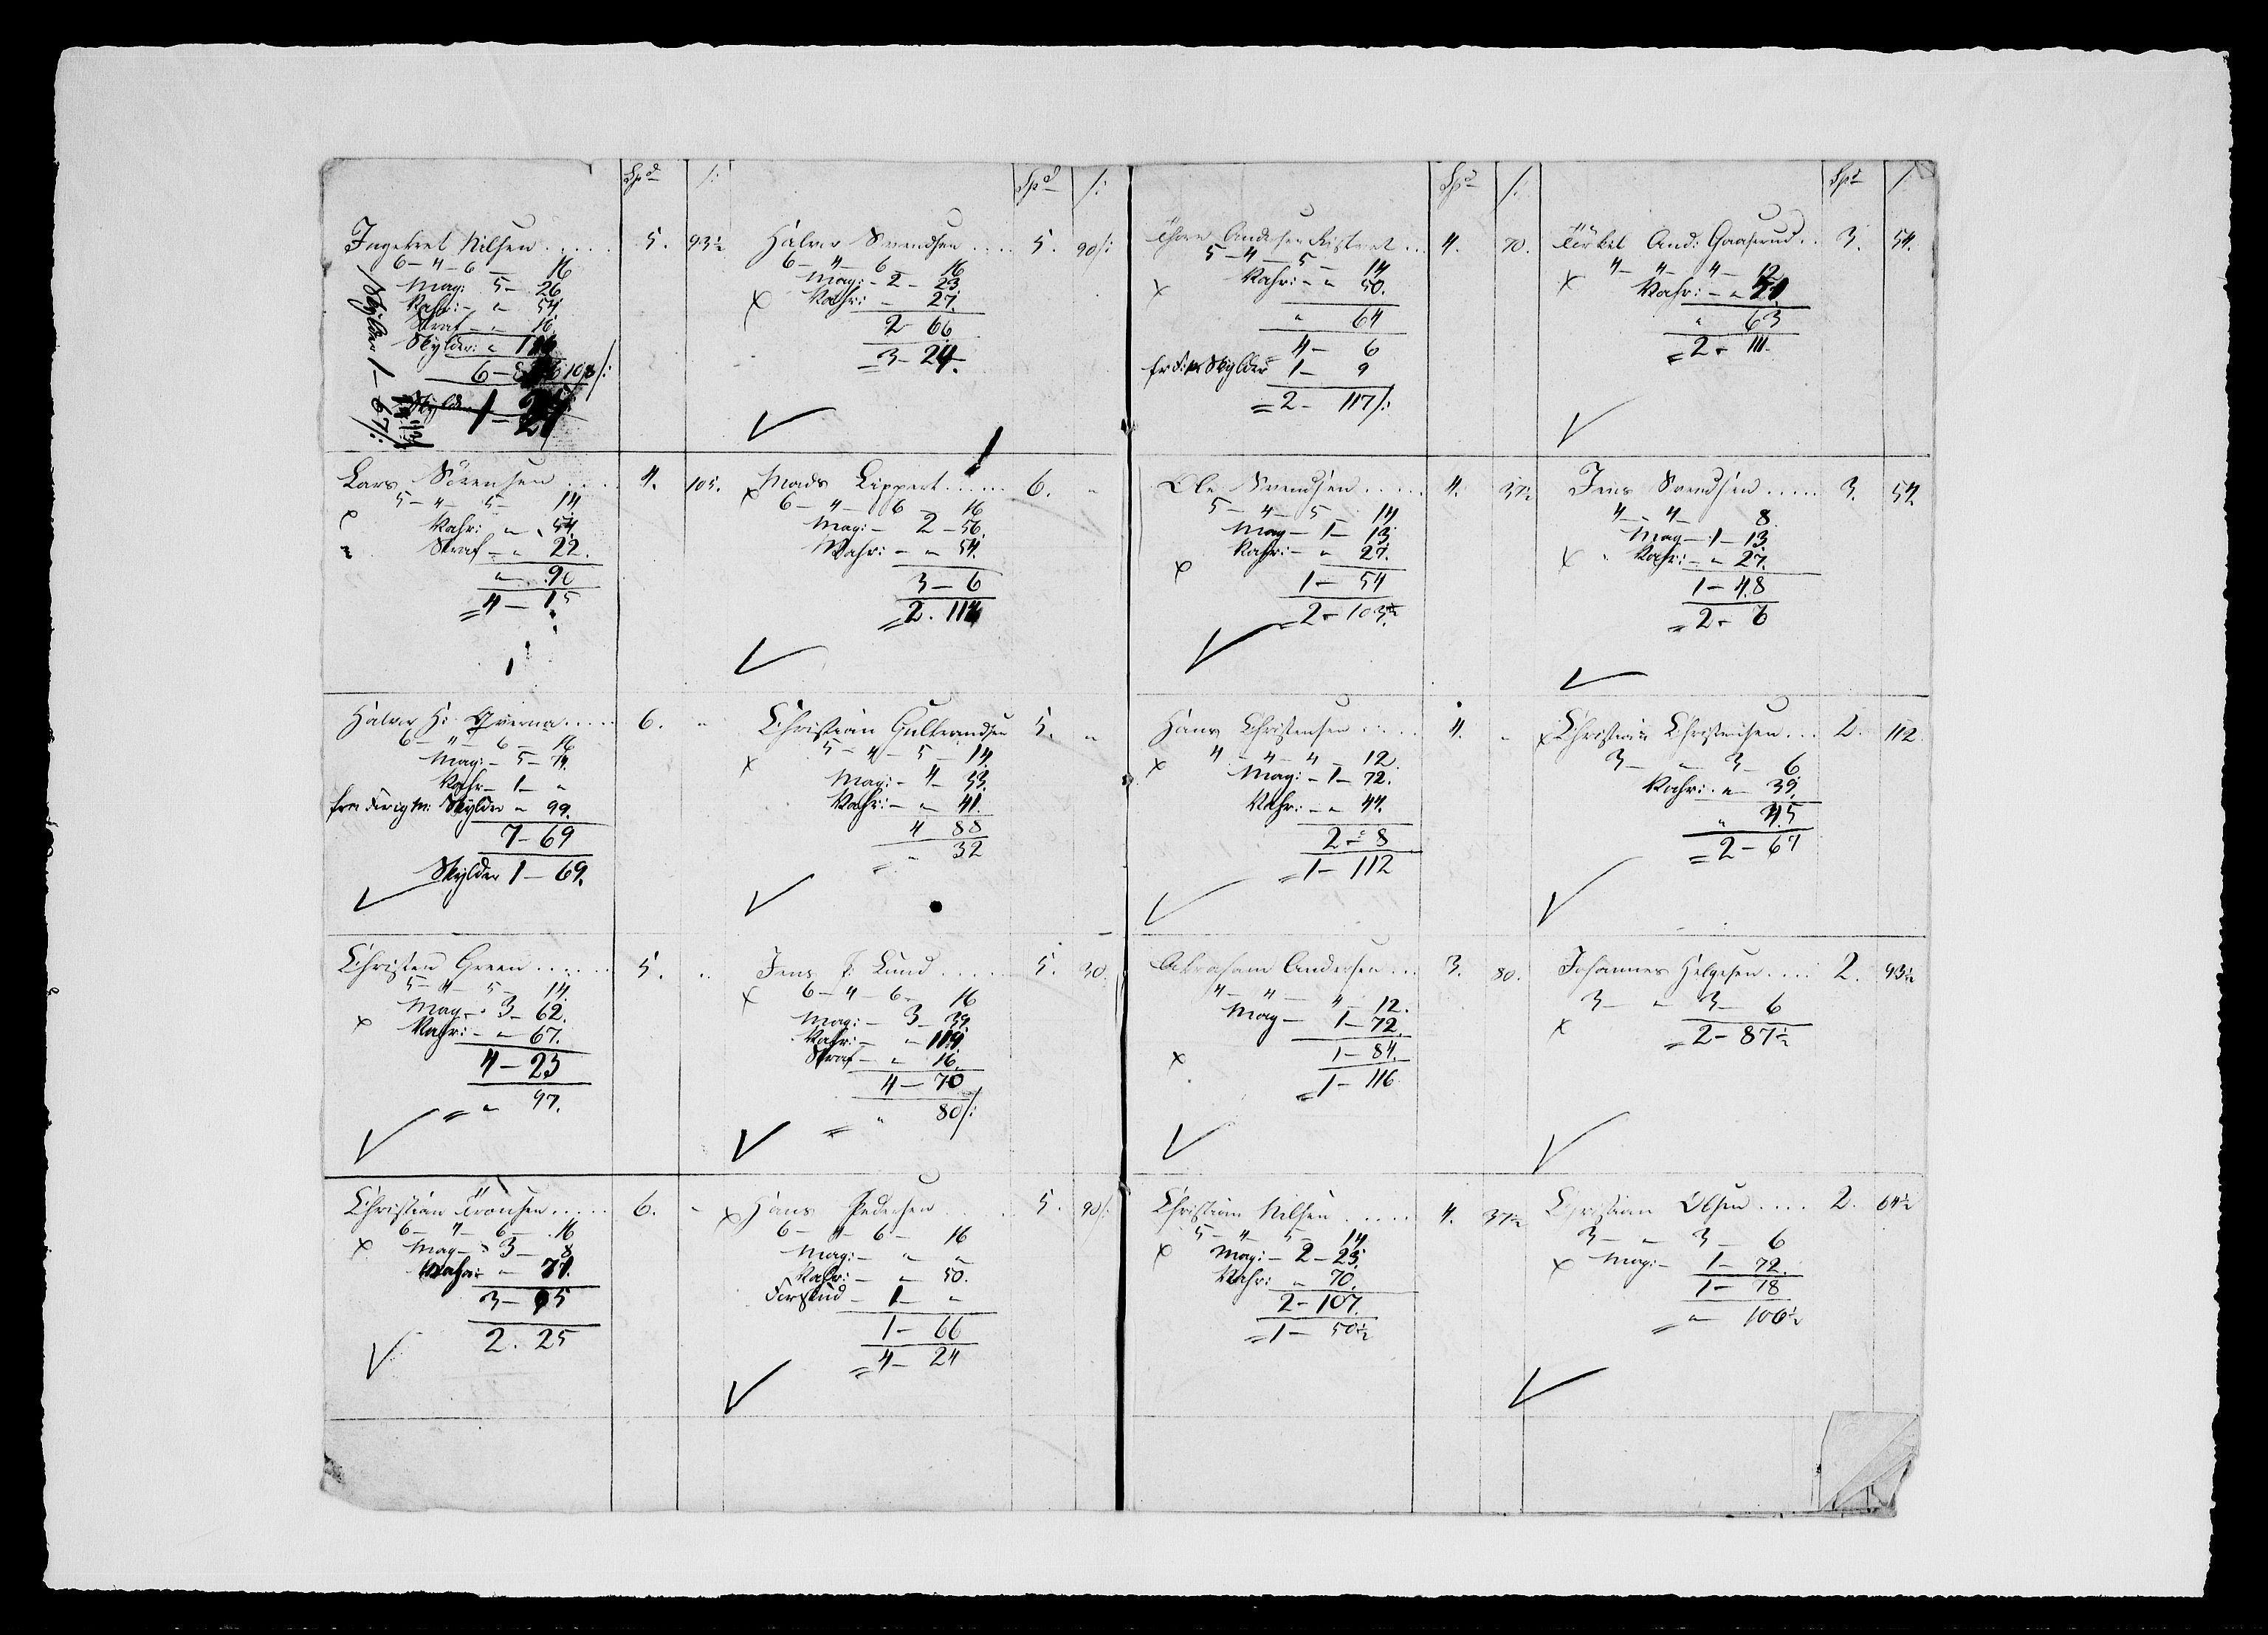 Spd /:
Ingebret Nilsen ..... 5. 93½
6 – 4 – 6 – 16
Mag: 5 – 26
Vahr: – " 54
Straf – " 16
Skylder: "
6 –
Skylder 1 –
Skylder 1 – 67/:
Lars Sörensen .... 4. 105.
5 – 4 – 5 – 14
x Vahr: – " 54.
Straf – " 22.
" – 90
= 4 – 15
Halvor H: Qverna ..... 6. "
6 – 4 – 6 – 16
Mag: – 5 – 74.
Vahr – 1 – "
fra Skylder " 99.
7 – 69
Skylder 1 – 69.
Christen Green ...... 5. "
5 – 4 – 5 – 14.
Mag – 3 – 62.
x Vahr: – " – 67.
4 – 23
= " 97.
Christian Tronsen ..... 6. "
6 – 4 – 6 – 16
x Mag – 3 – 8
Vahr: " – 71.
3 – 95
2. 25
Spd /:
Halvor Svendsen .... 5. 90/:
6 – 4 – 6 – 16
Mag: – 2 – 23.
x Vahr: – 27.
2 – 66
= 3 – 24.
Mads Lippert ...... 6. "
x 6 – 4 – 6 – 16
Mag: – 2 – 56.
Vahr: – " 54.
3 – 6
= 2. 114
Christian Gulbrandsen 5. "
x 5 – 4 – 5 – 14.
Mag: – 4 – 33.
Vahr: – " – 41.
4 88
= " 32
Jens Lund ..... 5. 30.
x 6 – 4 – 6 – 16
Mag: – 3 – 39.
Vahr: – " – 119.
Straf – " – 16.
4 – 70
= " 80/:
x Hans Pedersen .... 5. 90/:
6 – 4 – 6 – 16
Mag: – " "
Vahr: – " – 50.
Forskud – 1 – "
1 – 66
= 4 – 24
Spd /:
Thore Andersen ... 4. 70.
5 – 4 – 5 – 14
x Vahr: – " 50.
" 64
4 – 6
Skylder 1 – 9
= 2 – 117/:
Ole Svendsen ...... 4. 37½
5 – 4 – 5 – 14
Mag – 1 – 13.
x Vahr: – " 27.
1 – 54
= 2 – 103½
Hans Christensen ..... 4. "
x 4 – 4 – 4 – 12.
Mag: – 1 – 72.
Vahr: – " 44.
2 – 8
= 1 – 112
Abraham Andersen ... 3. 80.
4 – 4 – 4 – 12.
Mag – 1 – 72.
x 1 – 84.
= 1 – 116
Christian Nilsen ...... 4. 37½
5 – 4 – 5 – 14
x Mag: – 2 – 23.
Vahr: " 70.
2 – 107.
= 1 – 50½
Spd /:
Törkel And: Gaaserud .. 3. 54.
x 4 – 4 – 4 – 12
Vahr: – " 51
" 63
= 2 – 111.
Jens Svendsen ..... 3. 54.
4 – 4 – 8.
Mag – 1 – 13.
x Vahr: – " 27.
1 – 48
= 2 – 6
x Christian Christensen ... 2. 112.
3 – " – 3 – 6
Vahr: " – 39.
" 45
= 2 – 67
Johannes Helgesen .... 2. 93½
3 – " 3 – 6
x = 2 – 87½
Christian Olsen .... 2. 64½
3 – " – 3 – 6
x Mag: – 1 – 72.
1 – 78
= " – 106½